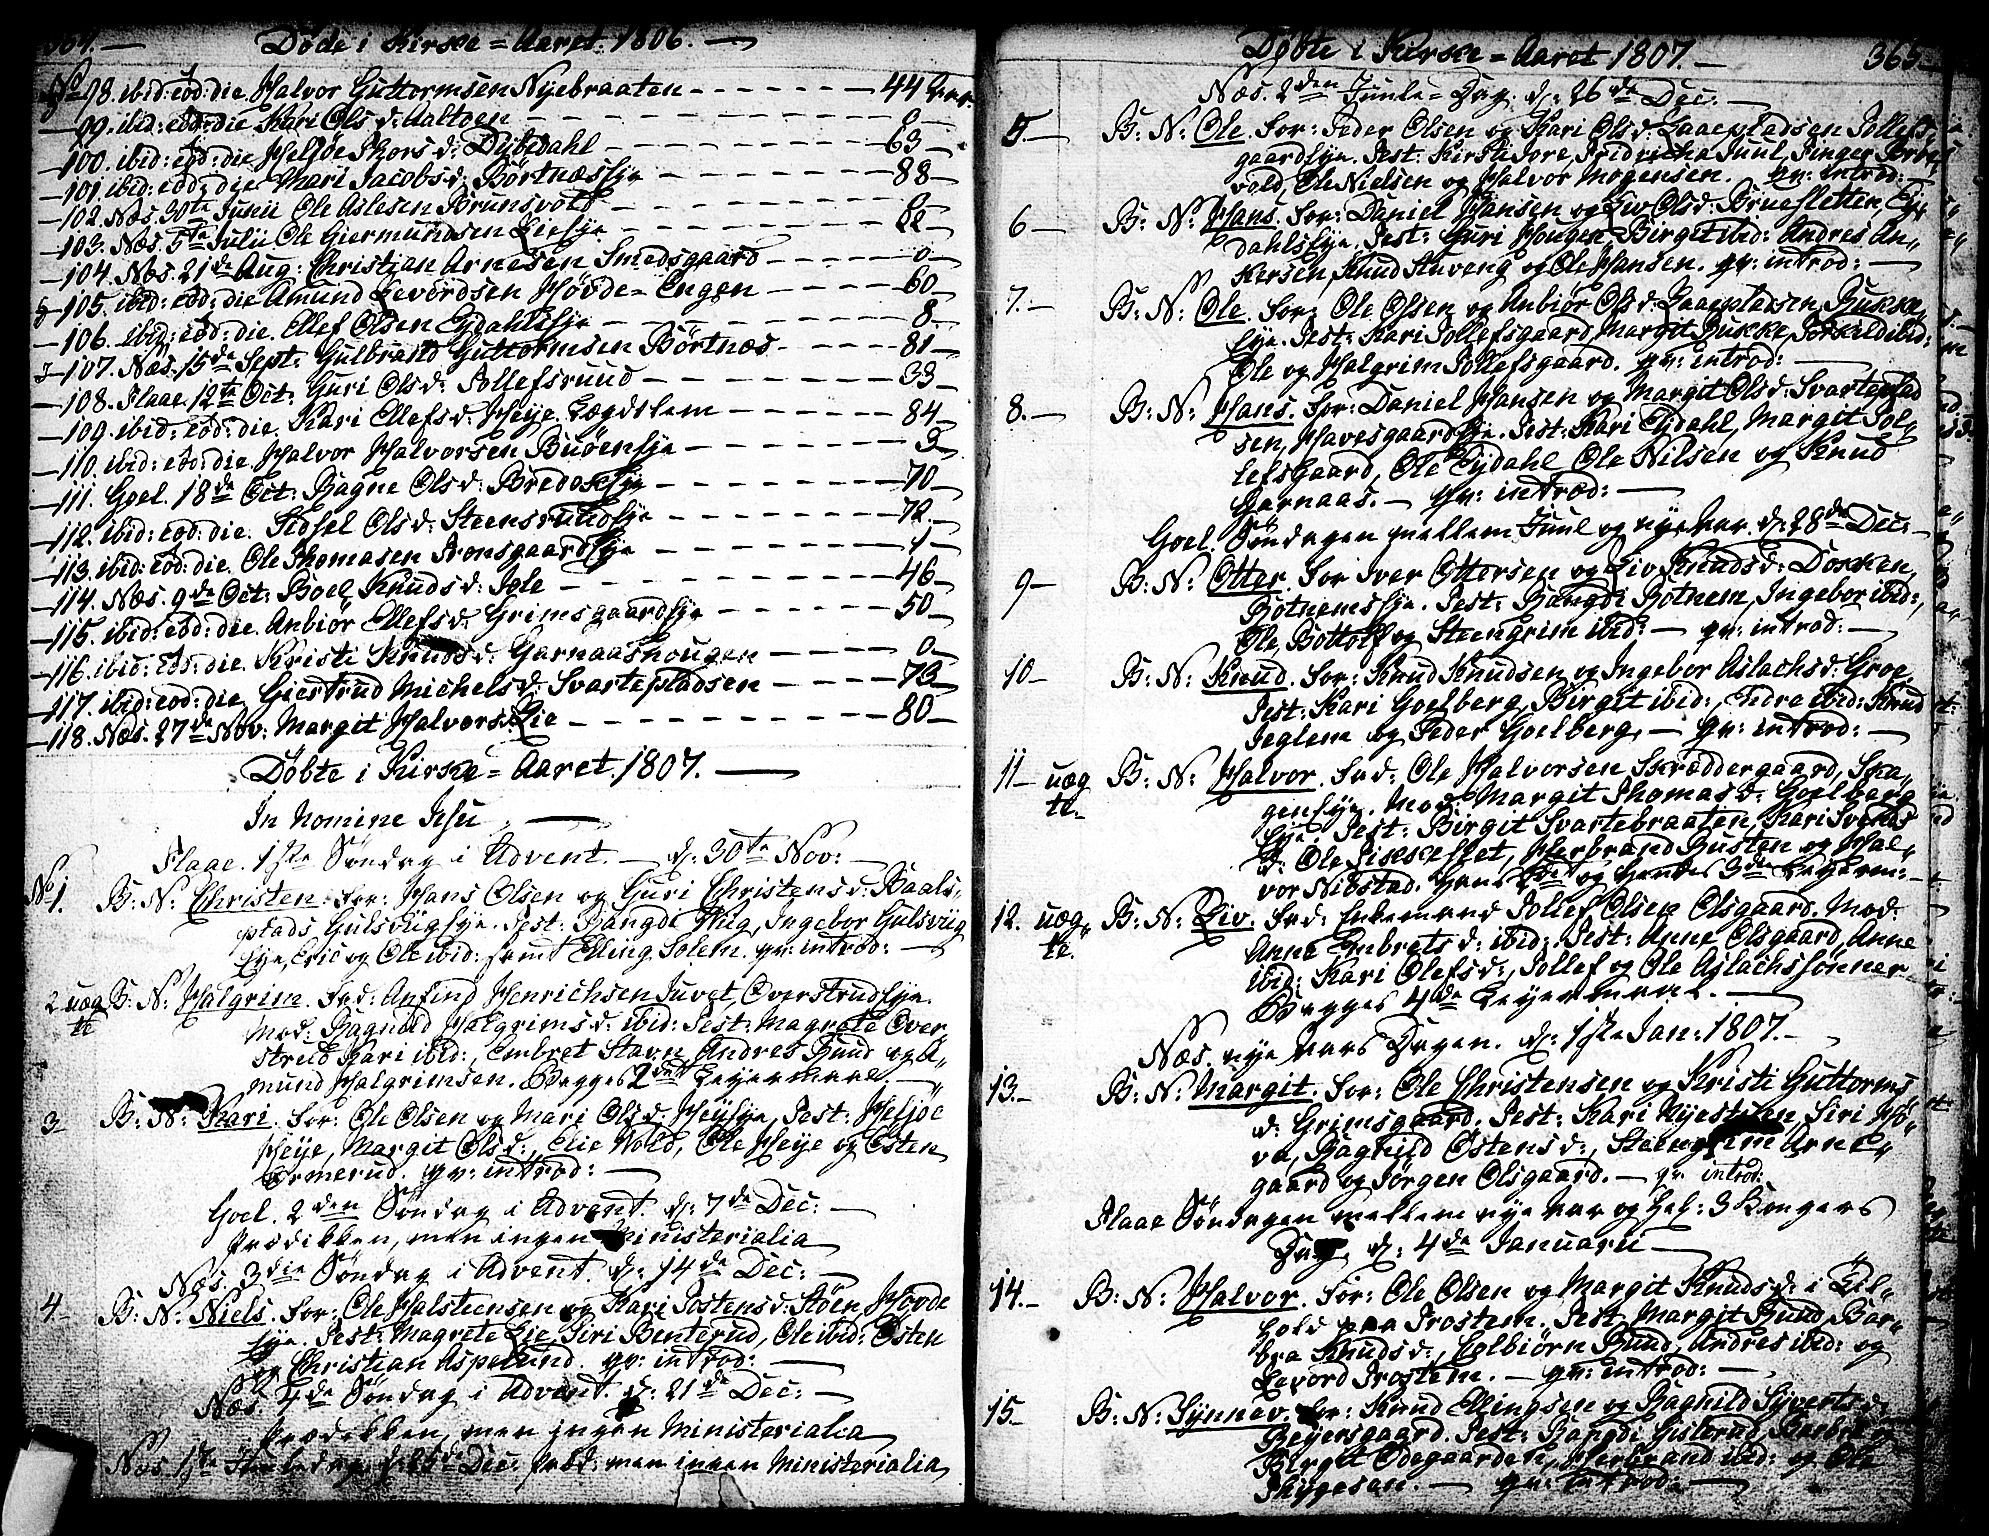 364. — Døde i Kirke=Aaret. 1806. —
No 98. ibid: eod: die Halvor Guttormsen Nyebraaten — 44 Aar
— 99. ibid: eod: die Kari Olsd: Aaltoen — 0 —
— 100. ibid: eod: die Heljøe Thorsd: — 63 —
— 101. ibid: eod: die Mari Jacobsd: Børtnæseye — 88 —
— 102. Næs. 30te Junii Ole Aslesen Brunsvold
— 103. Næs. 5te Julii Ole Giermundsen Lieeye — 22 —
— 104. Næs. 21de Aug: Christian Arnesen Smedsgaard — 0 —
— 105. ibid: eod: die Amund Levordsen Høvde=Engen — 60 —
— 106. ibid: eod: die. Ellef Olsen Eydahlseye — 8 —
— 107. Næs. 15de Sept: Gulbrand Guttormsen Børtnæs — 81 —
— 108. Flaae. 12te Oct: Guri Olsd: Tollefsruud — 33 —
— 109. ibid: eod: die. Kari Ellefsd: Heye. Lægdslem — 84 —
— 110. ibid: eod: die. Halvor Halvorsen Buøeneye — 3 —
— 111. Goel. 18de Oct: Ragne Olsd: — 70 —
— 112. ibid: eod: die. Sidsel Olsd: Steensruudeye — 72 —
— 113. ibid: eod: die. Ole Thomasen Tronsgaardeye — 1 —
— 114. Næs. 9de Oct: Boel Knudsd: Igle — 46 —
— 115. ibid: eod: die. Anbiør Ellefsd: Grimsgaardeye — 50 —
— 116. ibid: eod: die. Kristi Knudsd: Garnaashougen — 0 —
— 117. ibid: eod: die. Giertrud Michelsd: Svartepladsen — 73 —
— 118. Næs. 27de Nov: Margit Halvorsd: Lie — 80 —
Døbte i Kirke=Aaret. 1807. —
In Nomine Jesu —
Flaae. 1ste Søndag i Advent. — d: 30te Nov: —
No 1. B: N: Christen. For: Hans Olsen og Guri Christensd: Baals-
plads Gulsviigeye. Test: Rangdi Wiig, Ingebor Gulsviig
Eye, Eric og Ole ibid: samt Elling Solem. qv: introd: —
2 uæg B: N: Halgrim. Fad: Anfind Henrichsen Juvet, Overstrudeye.
te Mod: Ragnild Halgrimsd: ibid: Test: Magrete Over-
strud Kari ibid:, Embret Stavn, Andres Ruud og A-
mund Halgrimsen. Begges 2det Leyermaal. —
3 B: N: Kari. For: Ole Olsen og Mari Olsd: Heyeye, Test: Heljøe
Heye, Margit Olsd:, Elie Wold, Ole Heye og Østen
Ormerud. qv: introd: —
Goel. 2den Søndag i Advent. d: 7de Dec: —
Prædikken, men ingen Ministerialia
Næs. 3die Søndag i Advent. d: 14de Dec: —
4 — B: N: Niels. For: Ole Halsteensen og Kari Tostensd: Støen, Høvde
eye. Test: Magrete Lie, Siri Benterud, Ole ibid: Østen
og Christian Aspelund. qv: introd: —
Næs. 4de Søndag i Advent. d: 21de Dec: —
Prædikken, men ingen Ministerialia
Næs. 1ste Juuledag. d: 25de Dec: Præd: men ingen Ministerialia
Døbte i Kirke=Aaret 1807. — 365.
Næs. 2den Juule=Dag. d: 26de Dec: —
5. — B: N: Ole. For: Peder Olsen og Kari Olsd: Haaepladsen Tollefs-
gaardeye. Test: Kirsti Tore, Fridricha Juul,
vold, Ole Nielsen og Halvor Mogensen. qv: introd: —
6 — B: N: Hans. For: Daniel Hansen og Liv Olsd: Bruesletten, Ey-
dahlseye. Test: Guri Hougen, Birgit ibid: Andres An-
kersen, Knud Stuveng og Ole Hansen. qv: introd: —
7. — B: N: Ole. For: Ole Olsen og Anbiør Olsd: Haaepladsen, Bukke-
Eye. Test: Kari Tollefsgaard, Margit Bukke, Torkild ibid:
Ole og Halgrim Tollefsgaard. qv: introd: —
8. — B: N: Hans. For: Daniel Hansen og Margit Olsd: Svarteplad
sen, Havesgaardeye. Test: Kari Eydahl, Margit Tol-
lefsgaard, Ole Eydahl Ole Nilsen og Knud
Garnaas. — qv: introd: —
Goel. Søndagen mellem Juul og nye Aar. d: 28de Dec: —
9 — B: N: Otter. For Iver Ottersen og Liv Knudsd: Dokken,
Botnemseye. Test: Rangdi Botnem, Ingebor ibid:,
Ole, Bottolf og Steengrim ibid: — qv: introd: —
10 — B: N: Knud. For: Knud Knudsen og Ingebor Aslachsd: Groe.
Test: Kari Goelberg, Birgit ibid:, Endre ibid: Knud
Teglem og Peder Goelberg. — qv: introd: —
11 — uæg B: N: Halvor. Fad: Ole Halvorsen Skræddergaard, Ska-
te — geneye. Mod: Margit Thomasd: Goelberg
Eye. Test: Birgit Svartebraaten, Kari Svends
d: Ole, Herbrand Rusten og Hal-
vor Nibstad. Hans 2det og hendes 3die Leyerm: —
12. uæg- B: N: Liv. Fad: Enkemand Tollef Olsen Olsgaard. Mod:
te. Anne Embretsd: ibid:. Test: Anne Olsgaard, Anne
ibid: Kari Olefsd:, Tollef og Ole Aslachssønner
Begges 4de Leyermaal. —
Næs. nye Aars Dagen. d: 1ste Jan: 1807. —
13. — B: N: Margit. For: Ole Christensen og Kristi Guttorms
d: Grimsgaard. Test: Kari Nyestuen, Siri Hø-
ve, Ragnild Østensd:, Steengrim Arne-
gaard og Jørgen Olsgaard. — qv: introd:
Flaae Søndagen mellem nye Aar og Hel: 3 Kongers
Dag. d: 4de Januarii —
14. — B: N: Halvor. For: Ole Olsen og Margit Knudsd: i Til-
hold paa Trostem. Test: Margit Ruud, Bar-
bra Knudsd:, Eelbiørn Ruud, Andres ibid: og
Levord Trostem. — qv: introd: —
15. — B: N: Synnev. For: Knud Ellingsen og Ragnild Syvertsd:
Beyersgaard. Test: Rangdi Gisterud, Barbra og
Birgit Ødegaarden, Herbrand ibid: og Ole
Thygesen. — qv: introd: —